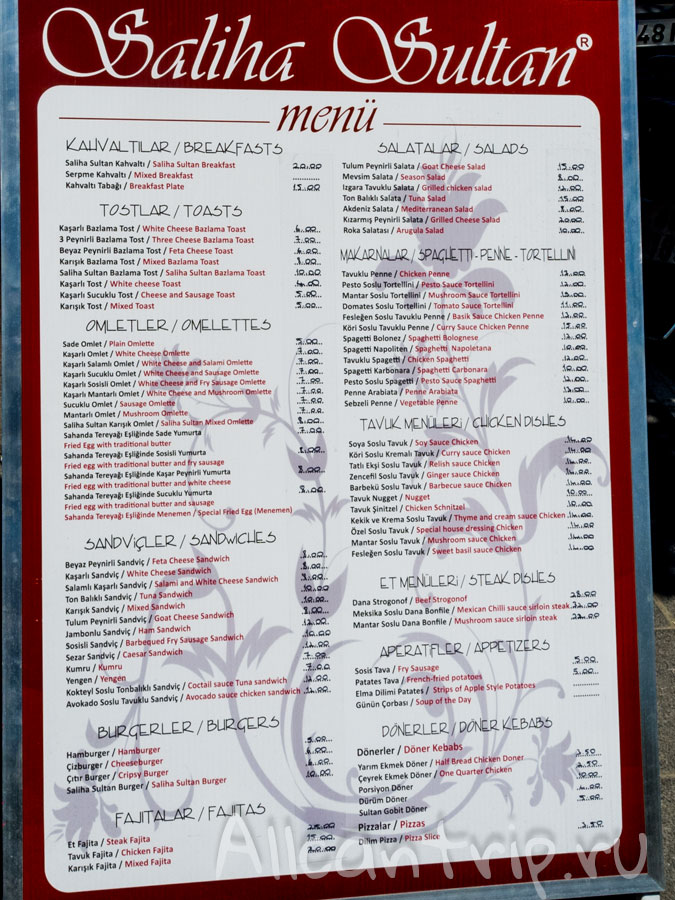 48
Saliha Sultan®
menü
KAHVALTILAR / BREAKFASTS
Saliha Sultan Kahvaltı / Saliha Sultan Breakfast 20.00
Serpme Kahvaltı / Mixed Breakfast ............
Kahvaltı Tabağı / Breakfast Plate 15.00
TOSTLAR / TOASTS
Kaşarlı Bazlama Tost / White Cheese Bazlama Toast 6.00
3 Peynirli Bazlama Tost / Three Cheese Bazlama Toast 7.00
Beyaz Peynirli Bazlama Tost / Feta Cheese Toast 6.00
Karışık Bazlama Tost / Mixed Bazlama Toast 8.00
Saliha Sultan Bazlama Tost / Saliha Sultan Bazlama Toast 10.00
Kaşarlı Tost / White cheese Toast 4.00
Kaşarlı Sucuklu Tost / Cheese and Sausage Toast 5.00
Karışık Tost / Mixed Toast 5.00
OMLETLER / OMELETTES
Sade Omlet / Plain Omlette 5.00
Kaşarlı Omlet / White Cheese Omlette 7.00
Kaşarlı Salamlı Omlet / White Cheese and Salami Omlette 7.00
Kaşarlı Sucuklu Omlet / White Cheese and Sausage Omlette 7.00
Kaşarlı Sosisli Omlet / White Cheese and Fry Sausage Omlette 7.00
Kaşarlı Mantarlı Omlet / White Cheese and Mushroom Omlette 7.00
Sucuklu Omlet / Sausage Omlette 7.00
Mantarlı Omlet / Mushroom Omlette 7.00
Saliha Sultan Karışık Omlet / Saliha Sultan Mixed Omlette 8.00
Sahanda Tereyağı Eşliğinde Sade Yumurta 7.00
Fried Egg with traditional butter
Sahanda Tereyağı Eşliğinde Sosisli Yumurta 8.00
Fried egg with traditional butter and fry sausage
Sahanda Tereyağı Eşliğinde Kaşar Peynirli Yumurta 8.00
Fried egg with traditional butter and white cheese
Sahanda Tereyağı Eşliğinde Sucuklu Yumurta 8.00
Fried egg with traditional butter and sausage
Sahanda Tereyağı Eşliğinde Menemen / Special Fried Egg (Menemen)
SANDVİÇLER / SANDWICHES
Beyaz Peynirli Sandviç / Feta Cheese Sandwich 8.00
Kaşarlı Sandviç / White Cheese Sandwich 8.00
Salamlı Kaşarlı Sandviç / Salami and White Cheese Sandwich 8.00
Ton Balıklı Sandviç / Tuna Sandwich 10.00
Karışık Sandviç / Mixed Sandwich 8.00
Tulum Peynirli Sandviç / Goat Cheese Sandwich
Jambonlu Sandviç / Ham Sandwich 12.00
Sosisli Sandviç / Barbequed Fry Sausage Sandwich 10.00
Sezar Sandviç / Caesar Sandwich 12.00
Kumru / Kumru 7.00
Yengen / Yengen 7.00
Kokteyl Soslu Tonbalıklı Sandviç / Coctail sauce Tuna sandwich 12.00
Avokado Soslu Tavuklu Sandviç / Avocado sauce chicken sandwich 12.00
BURGERLER / BURGERS
Hamburger / Hamburger 5.00
Çizburger / Cheeseburger 6.00
Çıtır Burger / Cripsy Burger 6.00
Saliha Sultan Burger / Saliha Sultan Burger 10.00
FAJITALAR / FAJITAS
Et Fajita / Steak Fajita 25.00
Tavuk Fajita / Chicken Fajita 15.00
Karışık Fajita / Mixed Fajita 20.00
SALATALAR / SALADS
Tulum Peynirli Salata / Goat Cheese Salad 15.00
Mevsim Salata / Season Salad 8.00
Izgara Tavuklu Salata / Grilled chicken salad 12.00
Ton Balıklı Salata / Tuna Salad 15.00
Akdeniz Salata / Mediterranean Salad 8.00
Kızarmış Peynirli Salata / Grilled Cheese Salad 20.00
Roka Salatası / Arugula Salad 10.00
MAKARNALAR / SPAGHETTI - PENNE - TORTELLINI
Tavuklu Penne / Chicken Penne 12.00
Pesto Soslu Tortellini / Pesto Sauce Tortellini 12.00
Mantar Soslu Tortellini / Mushroom Sauce Tortellini 15.00
Domates Soslu Tortellini / Tomato Sauce Tortellini 11.00
Fesleğen Soslu Tavuklu Penne / Basik Sauce Chicken Penne 12.00
Köri Soslu Tavuklu Penne / Curry Sauce Chicken Penne 15.00
Spagetti Bolonez / Spaghetti Bolognese 12.00
Spagetti Napoliten / Spaghetti Napoletana 10.00
Tavuklu Spagetti / Chicken Spaghetti 12.00
Spagetti Karbonara / Spaghetti Carbonara 10.00
Pesto Soslu Spagetti / Pesto Sauce Spaghetti 12.00
Penne Arabiata / Penne Arabiata 12.00
Sebzeli Penne / Vegetable Penne 10.00
TAVUK MENÜLERİ / CHICKEN DISHES
Soya Soslu Tavuk / Soy Sauce Chicken 14.00
Köri Soslu Kremalı Tavuk / Curry sauce Chicken 14.00
Tatlı Ekşi Soslu Tavuk / Relish sauce Chicken 14.00
Zencefil Soslu Tavuk / Ginger sauce Chicken 14.00
Barbekü Soslu Tavuk / Barbecue sauce Chicken 14.00
Tavuk Nugget / Nugget 10.00
Tavuk Şinitzel / Chicken Schnitzel 10.00
Kekik ve Krema Soslu Tavuk / Thyme and cream sauce Chicken 14.00
Özel Soslu Tavuk / Special house dressing Chicken 14.00
Mantar Soslu Tavuk / Mushroom sauce Chicken 14.00
Fesleğen Soslu Tavuk / Sweet basil sauce Chicken 14.00
ET MENÜLERİ / STEAK DISHES
Dana Strogonof / Beef Strogonof 28.00
Meksika Soslu Dana Bonfile / Mexican Chilli sauce sirloin steak 22.00
Mantar Soslu Dana Bonfile / Mushroom sauce sirloin steak 22.00
APERATİFLER / APPETIZERS
Sosis Tava / Fry Sausage 5.00
Patates Tava / French-fried potatoes 5.00
Elma Dilimi Patates / Strips of Apple Style Potatoes ............
Günün Çorbası / Soup of the Day ............
DÖNERLER / DÖNER KEBABS
Dönerler / Döner Kebabs
Yarım Ekmek Döner / Half Bread Chicken Doner 3.50
Çeyrek Ekmek Döner / One Quarter Chicken 2.50
Porsiyon Döner 10.00
Dürüm Döner 4.00
Sultan Gobit Döner 5.00
Pizzalar / Pizzas
Dilim Pizza / Pizza Slice 3.50
AllcanTrip.ru